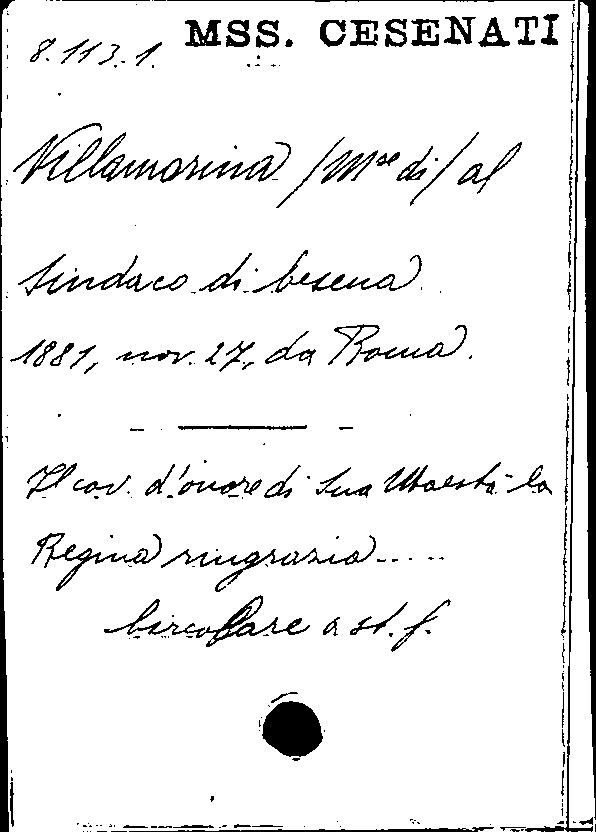 8.113.1 MSS. CESENATI
Villamarina /Mse di/ al
Sindaco di Cesena
1881, nov. 27, da Roma.
Il cav. d'onore di Sua Maestà la
Regina ringrazia.....
Circolare a st. f.